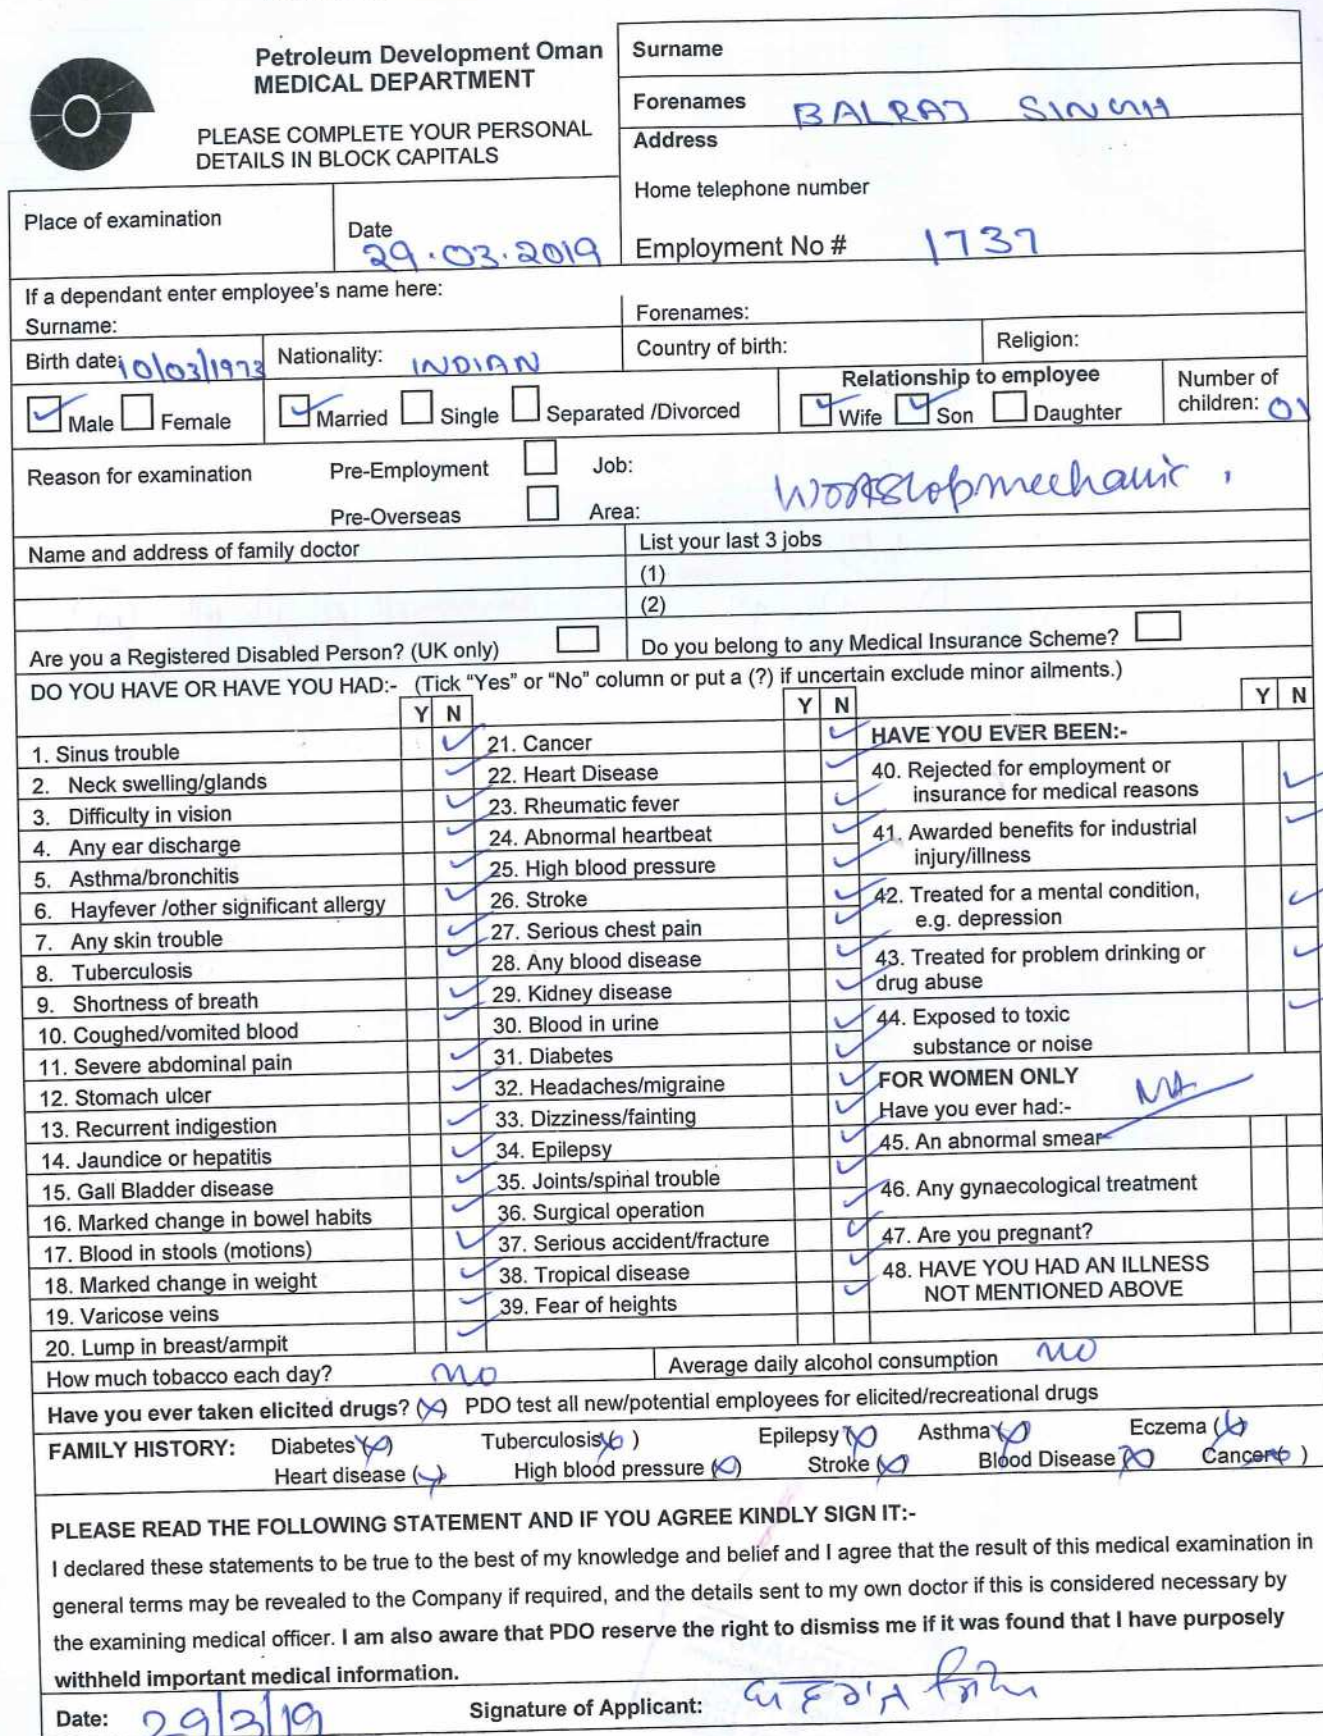 Petroleum Development Oman
MEDICAL DEPARTMENT
PLEASE COMPLETE YOUR PERSONAL
DETAILS IN BLOCK CAPITALS
Surname
Forenames BALRAJ SINGH
Address
Home telephone number
Employment No # 1737
Place of examination
Date
29.03.2019
If a dependant enter employee's name here:
Surname:
Forenames:
Birth date: 10/03/1973 Nationality: INDIAN Country of birth: Religion:
Male Female Married Single Separated /Divorced
Relationship to employee
Wife Son Daughter
Number of
children: 01
Reason for examination Pre-Employment Job:
Pre-Overseas Area:
Workshop mechanic
Name and address of family doctor
List your last 3 jobs
(1)
(2)
Are you a Registered Disabled Person? (UK only)
Do you belong to any Medical Insurance Scheme?
DO YOU HAVE OR HAVE YOU HAD:- (Tick “Yes” or “No” column or put a (?) if uncertain exclude minor ailments.)
Y N
1. Sinus trouble
2. Neck swelling/glands
3. Difficulty in vision
4. Any ear discharge
5. Asthma/bronchitis
6. Hayfever /other significant allergy
7. Any skin trouble
8. Tuberculosis
9. Shortness of breath
10. Coughed/vomited blood
11. Severe abdominal pain
12. Stomach ulcer
13. Recurrent indigestion
14. Jaundice or hepatitis
15. Gall Bladder disease
16. Marked change in bowel habits
17. Blood in stools (motions)
18. Marked change in weight
19. Varicose veins
20. Lump in breast/armpit
Y N
21. Cancer
22. Heart Disease
23. Rheumatic fever
24. Abnormal heartbeat
25. High blood pressure
26. Stroke
27. Serious chest pain
28. Any blood disease
29. Kidney disease
30. Blood in urine
31. Diabetes
32. Headaches/migraine
33. Dizziness/fainting
34. Epilepsy
35. Joints/spinal trouble
36. Surgical operation
37. Serious accident/fracture
38. Tropical disease
39. Fear of heights
Y N
HAVE YOU EVER BEEN:-
40. Rejected for employment or
insurance for medical reasons
41. Awarded benefits for industrial
injury/illness
42. Treated for a mental condition,
e.g. depression
43. Treated for problem drinking or
drug abuse
44. Exposed to toxic
substance or noise
FOR WOMEN ONLY
NA
Have you ever had:-
45. An abnormal smear
46. Any gynaecological treatment
47. Are you pregnant?
48. HAVE YOU HAD AN ILLNESS
NOT MENTIONED ABOVE
How much tobacco each day? NO
Average daily alcohol consumption NO
Have you ever taken elicited drugs? (x) PDO test all new/potential employees for elicited/recreational drugs
FAMILY HISTORY: Diabetes ( ) Tuberculosis ( ) Epilepsy ( ) Asthma ( ) Eczema ( )
Heart disease ( ) High blood pressure ( ) Stroke ( ) Blood Disease ( ) Cancer ( )
PLEASE READ THE FOLLOWING STATEMENT AND IF YOU AGREE KINDLY SIGN IT:-
I declared these statements to be true to the best of my knowledge and belief and I agree that the result of this medical examination in
general terms may be revealed to the Company if required, and the details sent to my own doctor if this is considered necessary by
the examining medical officer. I am also aware that PDO reserve the right to dismiss me if it was found that I have purposely
withheld important medical information.
Date: 29/3/19 Signature of Applicant: